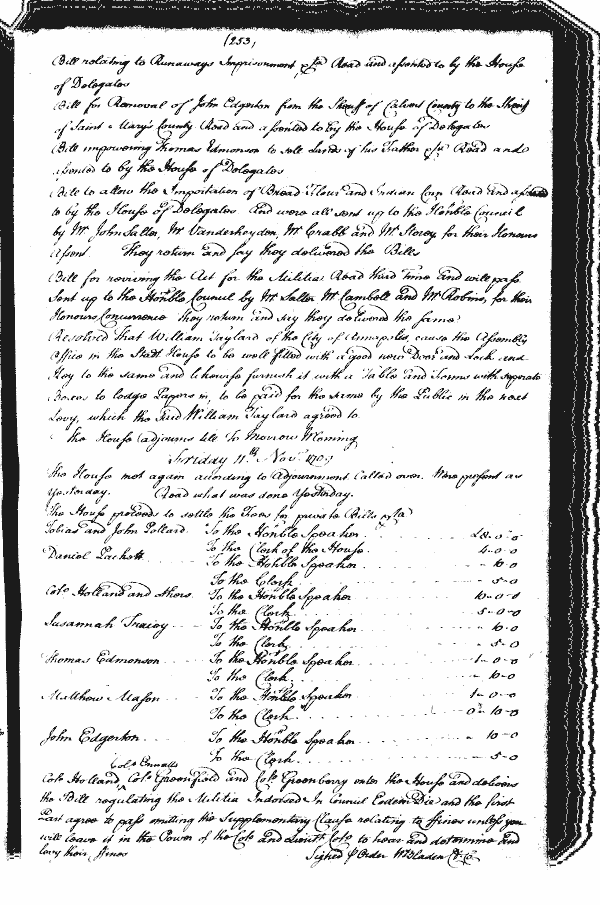 (253)
Bill relating to Runaways Imprisonment Read and assented to by the House
of Delegates
Bill for Removal of John Edgerton from the Sheriff of Calvert County to the Sheriff
of Saint Marys County Read and assented to by the House of Delegates
Bill impowering Thomas Edmonson to sell Lands of his Father Read and
assented to by the House of Delegates
Bill to allow the Importation of Bread Flour and Indian Corn Read and assented
to by the House of Delegates And were all sent up to the Honble Council
by Mr John Salter, Mr Vanderheyden, Mr Crabb and Mr Storey for their Honours
Assent. They return and say they delivered the Bills
Bill for reviving the Act for the Militia Read third time and will pass
Sent up to the Honble Council by Mr Salter Mr Cambell and Mr Robins, for their
Honours Concurrence They return and say they delivered the same
Resolved That William Taylard of the City of Annapolis, cause the Assembly
Office in the Stadt House to be well fitted with a good new Door and Lock and
Key to the same and likewise furnish it with a Table and Forms with seperate
Boxes to lodge Papers in, to be paid for the same by the Public in the next
Levy, which the said William Taylard agreed to
The House adjourns till To Morrow Morning
Friday 11th Novr 1709
The House met again according to Adjournment Called over. Were present as
Yesterday. Read what was done Yesterday.
The House proceeds to settle the Fees for private Bills
Tobias and John Pollard To the Honble Speaker £8-0-0
To the Clerk of the House 4-0-0
Daniel Pachett To the Honble Speaker 10-0
To the Clerk 5-0
Colo Holland and others To the Honble Speaker 10-0-0
To the Clerk 5-0-0
Susannah To the Honble Speaker 10-0
To the Clerk 5-0
Thomas Edmonson To the Honble Speaker 1-0-0
To the Clerk 10-0
Matthew Mason To the Honble Speaker 1-0-0
To the Clerk 0-10-0
John Edgerton To the Honble Speaker 10-0
To the Clerk 5-0
Colo Ennalls
Colo Holland, Colo Greenfield and Colo Greenberry enter the House and delivers
the Bill regulating the Militia Indorsed In Council Eodem Die and the first
Part agree to pass omitting the Supplementary Clause relating to ffines unless you
will leave it in the Power of the Colo and Lieutt Colo to hear and determine and
levy their ffines Signed p Order W Bladen Cl Co